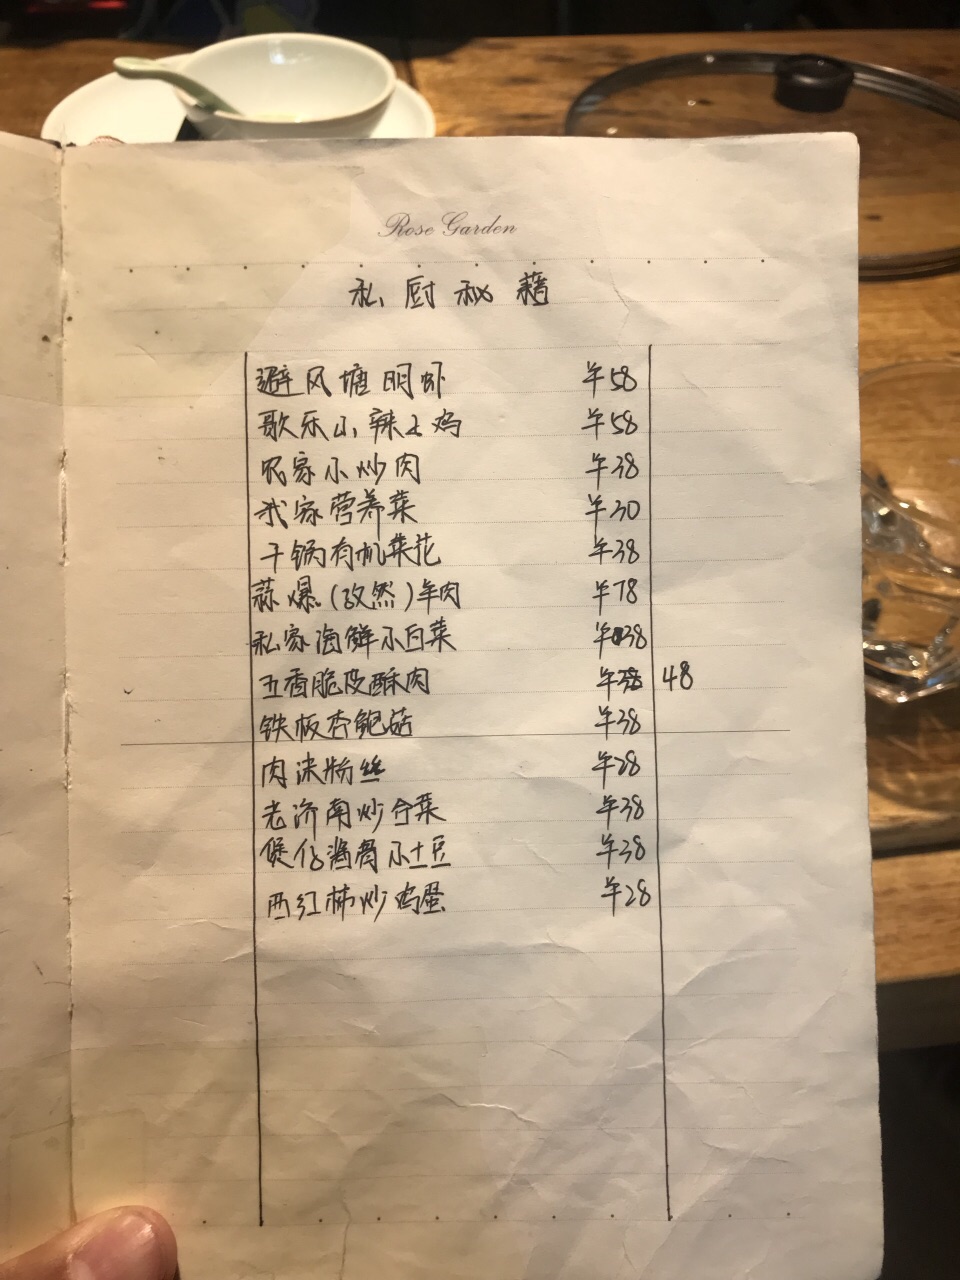 Rose Garden
私厨秘籍
避风塘明虾 ¥58
歌乐山辣子鸡 ¥58
农家小炒肉 ¥38
我家营养菜 ¥30
干锅有机菜花 ¥38
蒜爆(孜然)羊肉 ¥78
私家海鲜小白菜 ¥38
五香脆皮酥肉 ¥38 48
铁板杏鲍菇 ¥38
肉沫粉丝 ¥28
老济南炒合菜 ¥38
煲仔酱骨小土豆 ¥38
西红柿炒鸡蛋 ¥28